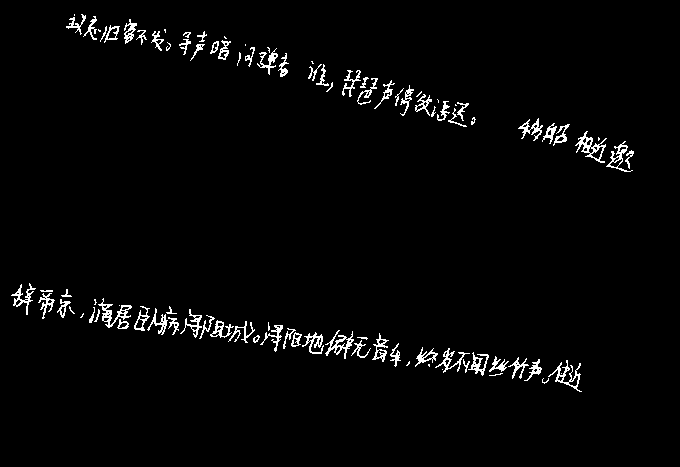 主人忘归客不发。寻声暗问弹者谁,琵琶声停欲语迟。移船相近邀
辞帝京,谪居卧病浔阳城。浔阳地僻无音乐,终岁不闻丝竹声。住近